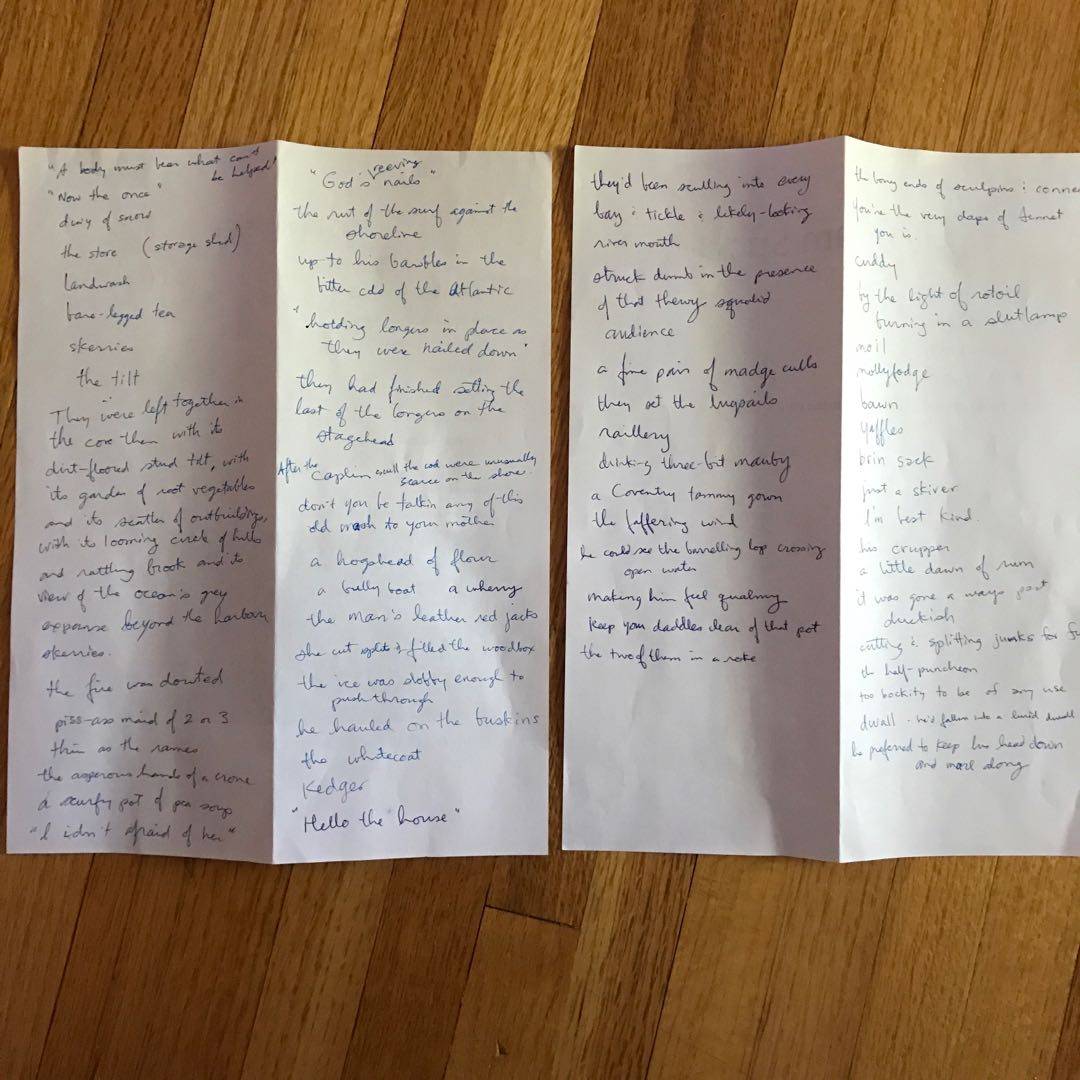 "A body must bear what can't
be helped"
"Now the once"
dwiy of snow
the store (storage shed)
Landwash
bare-legged tea
skerries
the tilt
They were left together in
the cove then with its
dirt-floored stud tilt, with
its garden of root vegetables
and its scatter of outbuildings,
with its looming circle of hills
and rattling brook and its
view of the ocean's grey
expanse beyond the harbour
skerries.
the fire was douted
piss-ass maid of 2 or 3
thin as the rames
the asperous hands of a crone
a scurfy pot of pea soup
"I idn't afraid of her"
"God's reeving nails"
the rut of the surf against the
shoreline
up to his barbles in the
bitter cold of the Atlantic
"holding longers in place as
they were nailed down"
they had finished setting the
last of the longers on the
stagehead
After the caplin scull the cod were unusually
scarce on the shore.
don't you be talkin any of this
old mash to your mother
a hogshead of flour
a bully boat a wherry
the man's leather red jacks
she cut splits & filled the woodbox
the ice was slobby enough to
push through
he hauled on the buskins
the whitecoat
Kedger
"Hello the house"
they'd been sculling into every
bay & tickle & likely-looking
river mouth
struck dumb in the presence
of that thewy squalid
audience
a fine pair of madge culls
they set the lugpails
raillery
drinking three-bit mauby
a Coventry tammy gown
the faffering wind
he could see the barrelling lop crossing
open water
making him feel qualmy
keep your daddles clear of that pot
the two of them in a roke
the bony ends of sculpins & conne
you're the very daps of Sennet
you is.
cuddy
by the light of rotoil
burning in a slutlamp
moil
mollyfodge
bawn
yaffles
brin sack
just a skiver
I'm best kind.
his crupper
a little dawn of rum
it was gone a ways past
duckish
cutting & splitting junks for
th half-puncheon
too bockity to be of any use
dwall - he'd fallen into a lucid dwall
he preferred to keep his head down
and moil along